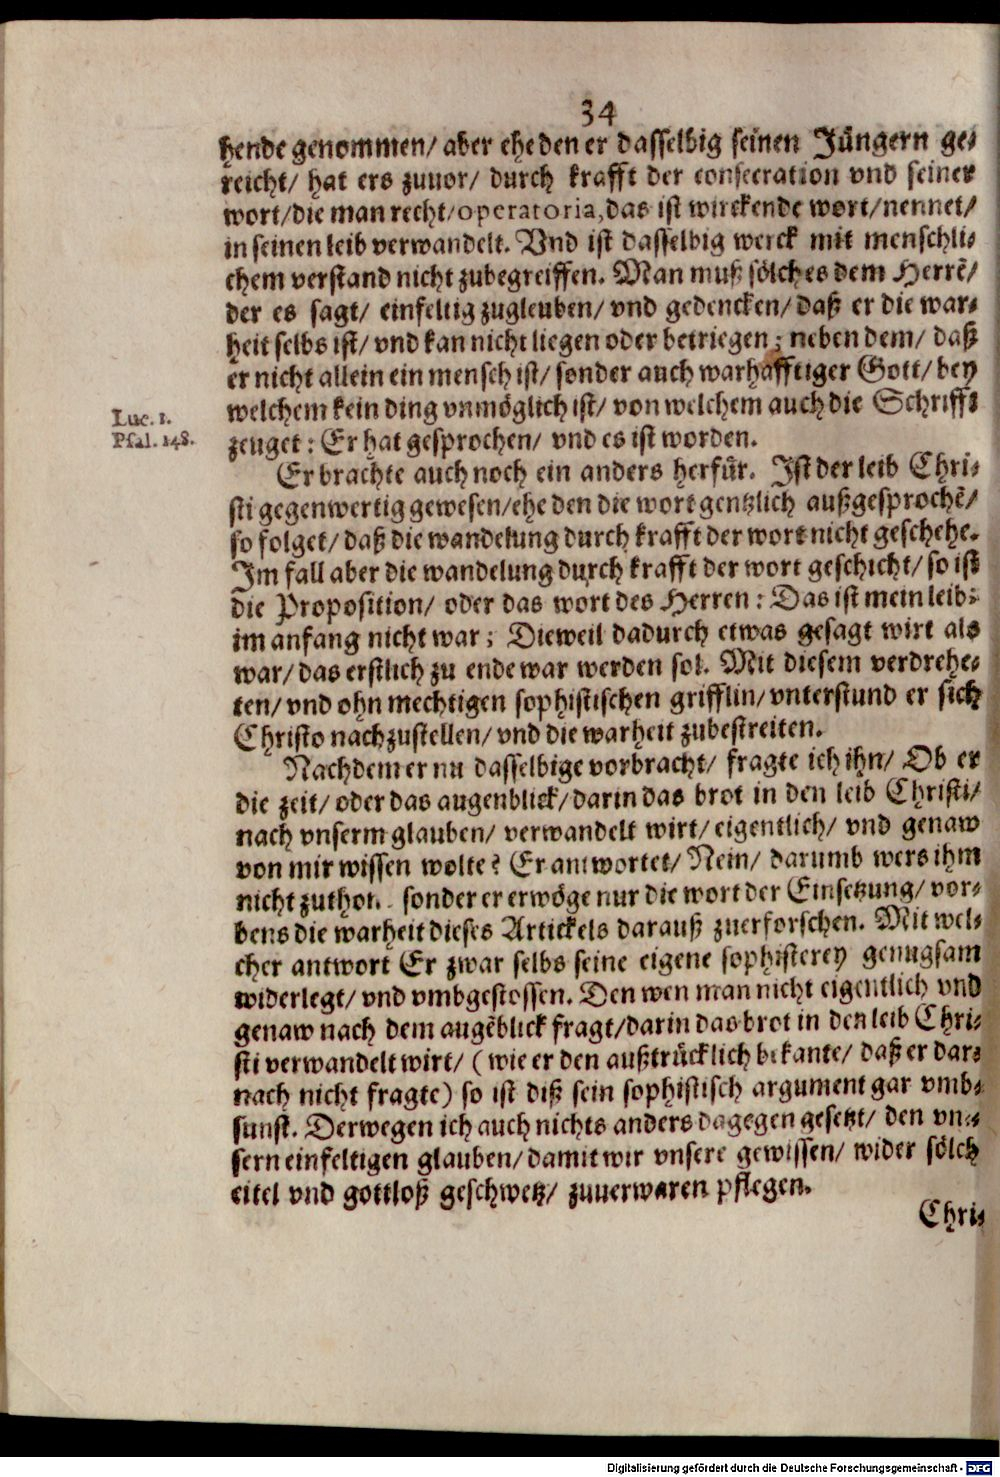 34
hende genommen/ aber ehe den er dasselbig seinen Jüngern ge⸗
reicht/ hat ers zuuor/ durch krafft der consecration vnd seiner
wort/die man recht/operatoria,das ist wirckende wort/nennet/
in seinen leib verwandelt. Vnd ist dasselbig werck mit menschli⸗
chem verstand nicht zubegreiffen. Man muß sölches dem Herrẽ/
der es sagt/ einfeltig zugleuben/ vnd gedencken/ daß er die war⸗
heit selbs ist/ vnd kan nicht liegen oder betriegen; neben dem/ daß
er nicht allein ein mensch ist/ sonder auch warhafftiger Gott/ bey
welchem kein ding vnmöglich ist/ von welchem auch die Schrifft
Luc. 1.
Psal. 148.
zeuget: Er hat gesprochen/ vnd es ist worden.
Er brachte auch noch ein anders herfür. Ist der leib Chri⸗
sti gegenwertig gewesen/ehe den die wort gentzlich außgesprochẽ/
so folget/ daß die wandelung durch krafft der wort nicht geschehe.
Im fall aber die wandelung durch krafft der wort geschicht/ so ist
die Proposition/ oder das wort des Herren: Das ist mein leib:
im anfang nicht war; Dieweil dadurch etwas gesagt wirt als
war/ das erstlich zu ende war werden sol. Mit diesem verdrehe⸗
ten/ vnd ohnmechtigen sophistischen grifflin/ vnterstund er sich
Christo nachzustellen/ vnd die warheit zubestreiten.
Nachdem er nu dasselbige vorbracht/ fragte ich ihn/ Ob er
die zeit/ oder das augenblick/ darin das brot in den leib Christi/
nach vnserm glauben/ verwandelt wirt/ eigentlich/ vnd genaw
von mir wissen wolte? Er antwortet/ Nein/ darumb wers ihm
nicht zuthon. sonder er erwöge nur die wort der Einsetzung/ vor⸗
bens die warheit dieses Artickels darauß zuerforschen. Mit wel⸗
cher antwort Er zwar selbs seine eigene sophisterey genugsam
widerlegt/ vnd vmbgestossen. Den wen man nicht eigentlich vnd
genaw nach dem augẽblick fragt/darin das brot in den leib Chri⸗
sti verwandelt wirt/ (wie er den außtrücklich bekante/ daß er dar⸗
nach nicht fragte) so ist diß sein sophistisch argument gar vmb⸗
sunst. Derwegen ich auch nichts anders dagegen gesetzt/ den vn⸗
sern einfeltigen glauben/ damit wir vnsere gewissen/ wider sölch
eitel vnd gottloß geschwetz/ zuuerwaren pflegen.
Chri⸗
Digitalisierung gefördert durch die Deutsche Forschungsgemeinschaft - DFG